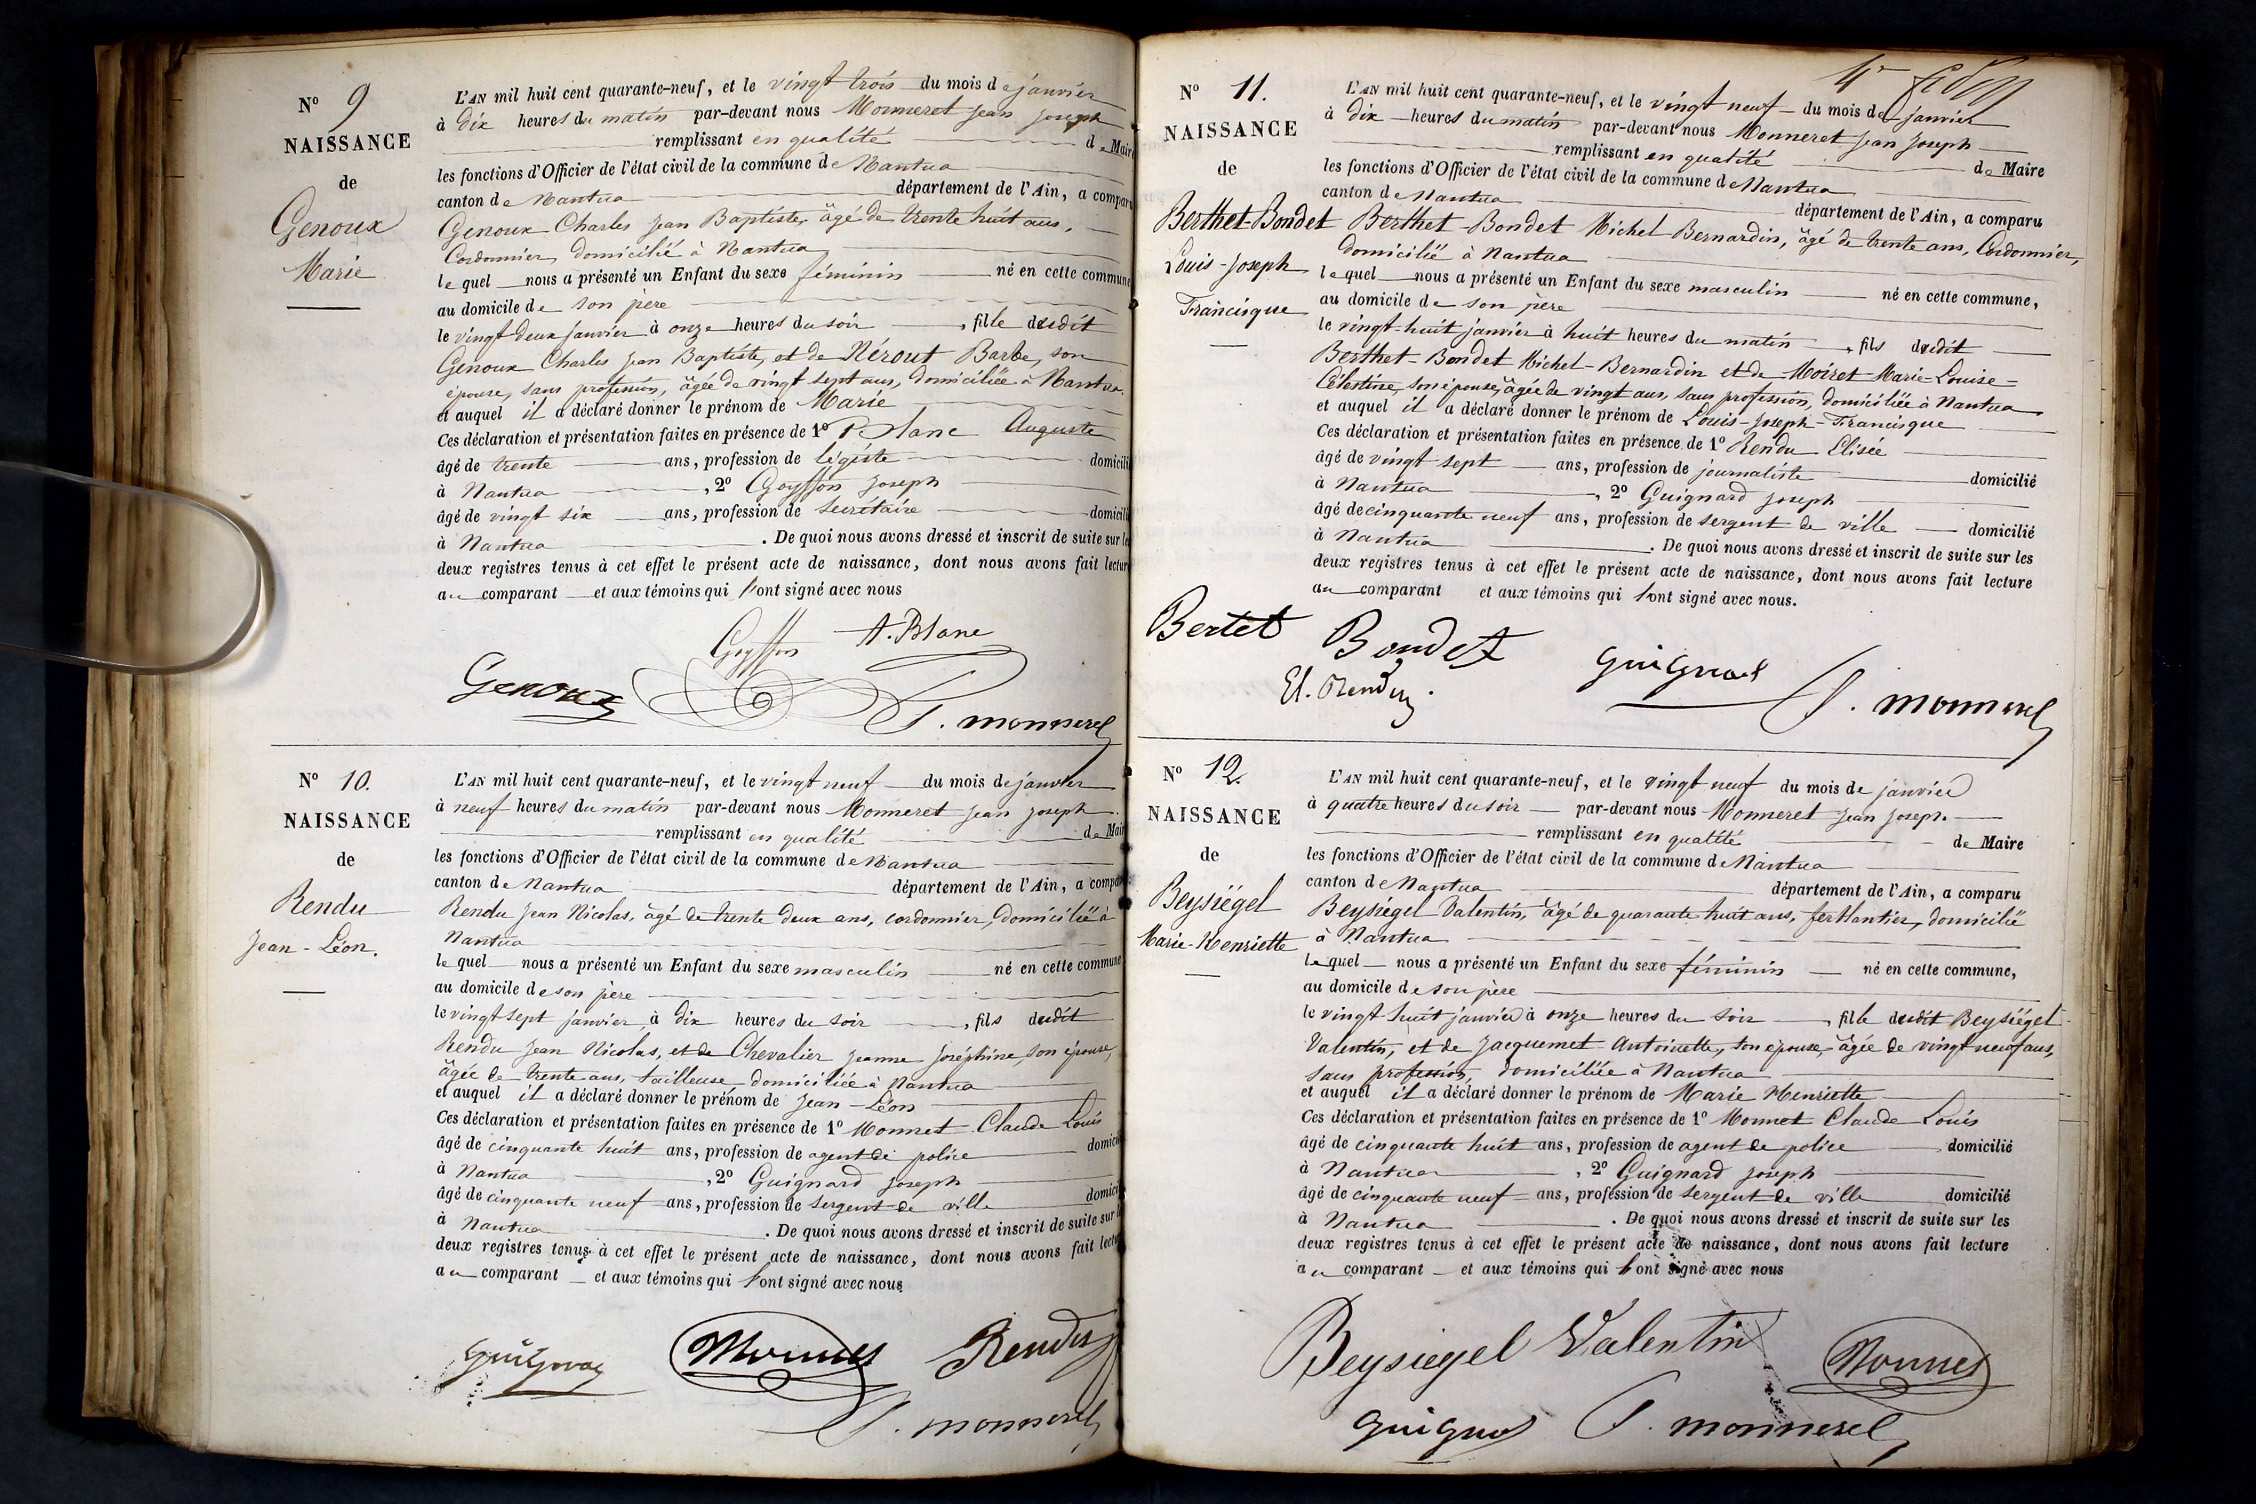 N° 9
NAISSANCE
de
Genoux
Marie
L'AN mil huit cent quarante-neuf, et le vingt trois du mois de janvier
à dix heures du matin par-devant nous Monneret Jean Joseph
remplissant en qualité de Maire
les fonctions d'Officier de l'état civil de la commune de Nantua
canton de Nantua département de l'Ain, a comparu
Genoux Charles Jean Baptiste, âgé de trente huit ans,
Cordonnier, domicilié à Nantua
lequel nous a présenté un Enfant du sexe féminin né en cette commune
au domicile de son père
le vingt deux janvier à onze heures du soir, fille dudit
Genoux Charles Jean Baptiste, et de Nérout Barbe, son
épouse, sans profession, âgée de vingt sept ans, domiciliée à Nantua.
et auquel il a déclaré donner le prénom de Marie
Ces déclaration et présentation faites en présence de 1° Blanc Auguste
âgé de trente ans, profession de légiste domicili
à Nantua, 2° Goyffon Joseph
âgé de vingt six ans, profession de secrétaire domicili
à Nantua. De quoi nous avons dressé et inscrit de suite sur les
deux registres tenus à cet effet le présent acte de naissance, dont nous avons fait lecture
au comparant et aux témoins qui l'ont signé avec nous
Goyffon A. Blanc
Genoux J. monneret
N° 10.
NAISSANCE
de
Rendu
Jean-Léon.
L'AN mil huit cent quarante-neuf, et le vingt neuf du mois de janvier
à neuf heures du matin par-devant nous Monneret Jean Joseph.
remplissant en qualité de Mair
les fonctions d'Officier de l'état civil de la commune de Nantua
canton de Nantua département de l'Ain, a compar
Rendu Jean Nicolas, âgé de trente deux ans, cordonnier, domicilié à
Nantua
lequel nous a présenté un Enfant du sexe masculin né en cette commune
au domicile de son père
le vingt sept janvier à dix heures du soir, fils dudit
Rendu Jean Nicolas, et de Chevalier Jeanne Joséphine, son épouse,
âgée de trente ans, tailleuse, domiciliée à Nantua
et auquel il a déclaré donner le prénom de Jean-Léon
Ces déclaration et présentation faites en présence de 1° Monnet Claude Louis
âgé de cinquante huit ans, profession de agent de police domici
à Nantua, 2° Guignard Joseph
âgé de cinquante neuf ans, profession de sergent de ville domici
à Nantua. De quoi nous avons dressé et inscrit de suite sur
deux registres tenus à cet effet le présent acte de naissance, dont nous avons fait lectu
au comparant et aux témoins qui l'ont signé avec nous
Monnet Rendu
J. monneret
N° 11.
NAISSANCE
de
Berthet-Bondet
Louis-Joseph
Francisque
L'AN mil huit cent quarante-neuf, et le vingt neuf du mois de janvier
à dix heures du matin par-devant nous Monneret Jean Joseph
remplissant en qualité de Maire
les fonctions d'Officier de l'état civil de la commune de Nantua
canton de Nantua département de l'Ain, a comparu
Berthet-Bondet Michel Bernardin, âgé de trente ans, Cordonnier,
domicilié à Nantua
lequel nous a présenté un Enfant du sexe masculin né en cette commune,
au domicile de son père
le vingt-huit janvier à huit heures du matin, fils dudit
Berthet-Bondet Michel-Bernardin et de Moiret Marie-Louise-
Célestine, son épouse, âgée de vingt ans, sans profession, domiciliée à Nantua
et auquel il a déclaré donner le prénom de Louis-Joseph-Francisque
Ces déclaration et présentation faites en présence de 1° Rendu Elisée
âgé de vingt sept ans, profession de journaliste domicilié
à Nantua, 2° Guignard Joseph
âgé de cinquante neuf ans, profession de sergent de ville domicilié
à Nantua. De quoi nous avons dressé et inscrit de suite sur les
deux registres tenus à cet effet le présent acte de naissance, dont nous avons fait lecture
au comparant et aux témoins qui l'ont signé avec nous.
Bertet Bondet
El. Rendu. J. monneret
N° 12.
NAISSANCE
de
Beysiégel
Marie-Henriette
L'AN mil huit cent quarante-neuf, et le vingt neuf du mois de janvier
à quatre heures du soir par-devant nous Monneret Jean Joseph.
remplissant en qualité de Maire
les fonctions d'Officier de l'état civil de la commune de Nantua
canton de Nantua département de l'Ain, a comparu
Beysiégel Valentin, âgé de quarante huit ans, ferblantier, domicilié
à Nantua
lequel nous a présenté un Enfant du sexe féminin né en cette commune,
au domicile de son père
le vingt huit janvier à onze heures du soir, fille dudit Beysiégel
Valentin, et de Jacquemet Antoinette, son épouse, âgée de vingt neuf ans,
sans profession, domiciliée à Nantua
et auquel il a déclaré donner le prénom de Marie Henriette
Ces déclaration et présentation faites en présence de 1° Monnet Claude Louis
âgé de cinquante huit ans, profession de agent de police domicilié
à Nantua, 2° Guignard Joseph
âgé de cinquante neuf ans, profession de sergent de ville domicilié
à Nantua. De quoi nous avons dressé et inscrit de suite sur les
deux registres tenus à cet effet le présent acte de naissance, dont nous avons fait lecture
au comparant et aux témoins qui l'ont signé avec nous
Beysiegel Valentin Monnet
J. monneret